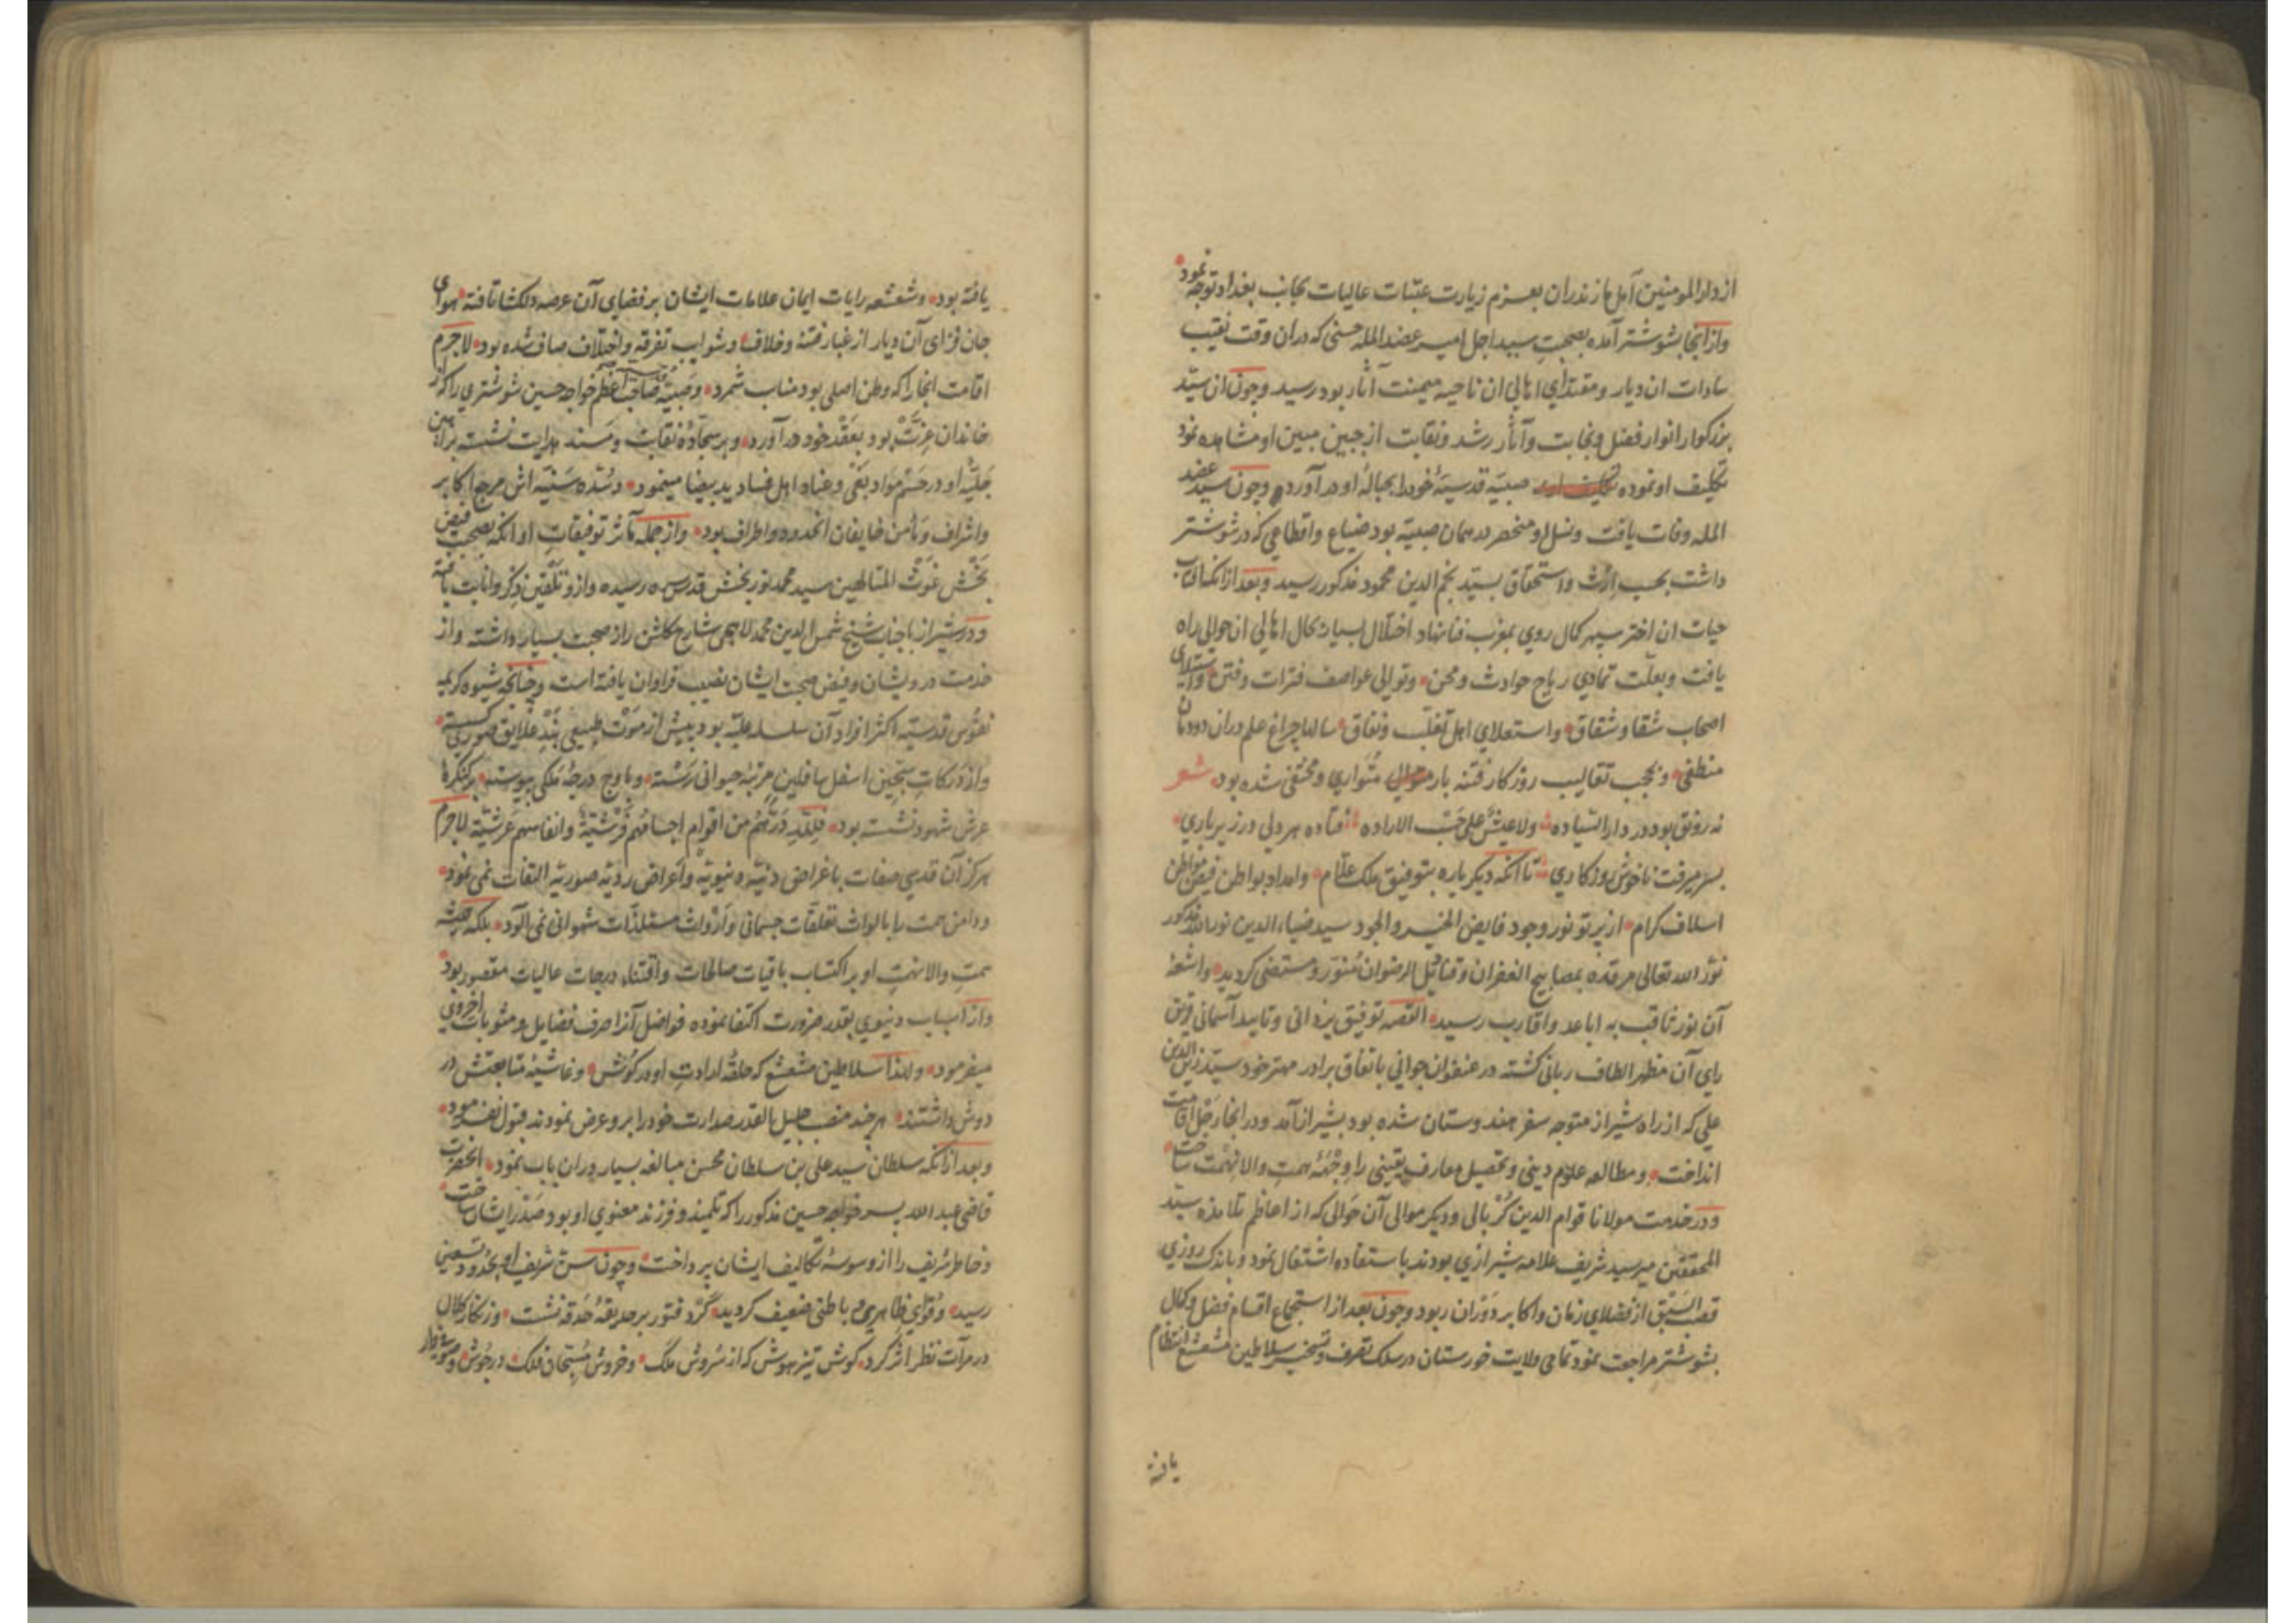 از دار المومنین آمل مازندران بعزم زیارت عتبات عالیات بجانب بغداد توجه نمود
وازانجا بشوشتر آمده بصحبت سید اجل امیر عضد الملة حسنی که دران وقت نقیب
سادات ان دیار ومقتدای اهالی ان ناحیه میمنت آثار بود رسید وچون ان سید
بزرکوار انوار فضل ونجابت وآثار رشد ونقابت از جبین مبین او مشاهده نمود
تکلیف او نموده صبیه قدسیه خود را بحباله او در آورد وچون سید عضد
المله وفات یافت ونسل او منحصر در همان صبیه بود ضیاع واقطاعی که در شوشتر
داشت بحسب ارث واستحقاق بسید نجم الدین محمود مذکور رسید وبعد ازانکه آفتاب
حیات ان اختر سپهر کمال روی بمغرب فنا نهاد اختلال بسیار بحال اهالی ان حوالی راه
یافت وبعلت تمادی ریاح حوادث ومحن وتوالی عواصف فترات وفتن واستیلای
اصحاب شقا وشقاق واستعلای اهل تغلب ونفاق سالها چراغ علم دران دودمان
منطفی وبحجب تقالیب روزکار فتنه بار متواری ومختفی شده بود شعر
نه رونق بود در دار السیاده ولا عیش علی حسب الاراده فتاده هر دلی در زیر باری
بسر میرفت ناخوش روزکاری تا آنکه دیکر باره بتوفیق ملک علام وامداد بواطن فیض مواطن
اسلاف کرام از پرتو نور وجود فایض الخیر والجود سید ضیاء الدین نورالله مذکور
نور الله تعالی مرقده بمصابیح الغفران وقنادیل الرضوان منور ومستضی کردید واشعه
آن نور ثاقب به اباعد واقارب رسید القصه توفیق یزدانی وتایید آسمانی قرین
رای آن مظهر الطاف ربانی کشته در عنفوان جوانی باتفاق برادر مهتر خود سید زین الدین
علی که از راه شیراز متوجه سفر هندوستان شده بود بشیراز آمد ودر انجا رحل اقامت
انداخت ومطالعه علوم دینی وتحصیل معارف یقینی را وجهه همت والا نهمت ساخت
ودر خدمت مولانا قوام الدین کربالی ودیکر موالی آن حوالی که از اعاظم تلامذه سید
المحققین میر سید شریف علامه شیرازی بودند باستفاده اشتغال نمود وباندک روزی
قصب السبق از فضلای زمان واکابر دوران ربود وچون بعد از استجماع اقسام فضل وکمال
بشوشتر مراجعت نمود تمامی ولایت خوزستان در سلک تصرف وتسخیر سلاطین مشعشع انتظام
یافته
یافته بود وشعشعه رایات ایمان علامات ایشان بر فضای آن عرصه دلکشا تافته هوای
جان فزای آن دیار از غبار فتنه وخلاف وشوایب تفرقه واختلاف صاف شده بود لاجرم
اقامت انجا را که وطن اصلی بود مناسب شمرد وصبیه صاحب اعظم خواجه حسین شوشتری را که از
خاندان عزت بود بعقد خود در آورد وبر سجاده نقابت ومسند هدایت نشسته براهین
جلیه او در حسم مواد بغی وعناد اهل فساد ید بیضا مینمود وسده سنیه اش مرجع اکابر
واشراف ومأمن خایفان انحدود واطراف بود واز جمله مآثر توفیقات او انکه بصحبت فیض
بخش غوث المتالهین سید محمد نوربخش قدس سره رسیده وازو تلقین ذکر وانابت یافته
ودر شیراز با جناب شیخ شمس الدین محمد لاهیجی شارح کلشن راز صحبت بسیار داشته واز
خدمت درویشان وفیض صحبت ایشان نصیب فراوان یافته است وچنانچه شیوه کریمه
نفوس قدسیه اکثر افراد آن سلسله علیه بود پیش از موت طبیعی بند علایق صوری کسسته
واز درکات سجین اسفل سافلین مرتبه حیوانی رسته وباوج درجه ملکی پیوسته بر کنکره
عرش شهود نشسته بود فلله درهم من اقوام اجسامهم فرشیة وانفاسهم عرشیة لاجرم
هرکز آن قدسی صفات باغراض دنیه دنیویه واعراض ردیه صوریه التفات نمی نمود
ودامن همت را بالواث تعلقات جسمانی وارواث مستلذات شهوانی نمی آلود بلکه همیشه
همت والا نهمت او بر اکتساب باقیات صالحات واقتناء درجات عالیات مقصور بود
واز اسباب دنیوی بقدر ضرورت اکتفا نموده فواضل آنرا صرف فضایل ومثوبات اخروی
میفرمود ولهذا سلاطین مشعشع که حلقه ارادت او در کوش وغاشیه متابعتش در
دوش داشتند هرچند منصب جلیل القدر صدارت خود را برو عرض نمودند قبول نفرمود
وبعد ازانکه سلطان سید علی بن سلطان محسن مبالغه بسیار دران باب نمود انحضرت
قاضی عبد الله پسر خواجه حسین مذکور را که تلمیذ وفرزند معنوی او بود صدر ایشان ساخت
وخاطر شریف را از وسوسه تکالیف ایشان پرداخت وچون سن شریف او بحدود تسعین
رسید وقوای ظاهری وباطنی ضعیف کردید کرد فتور بر حدیقه حدقه نشست وزنکار کلال
در مرآت نظر اثر کرد کوش تیزهوش که از سروش ملک وخروش مسبحان فلک در جوش